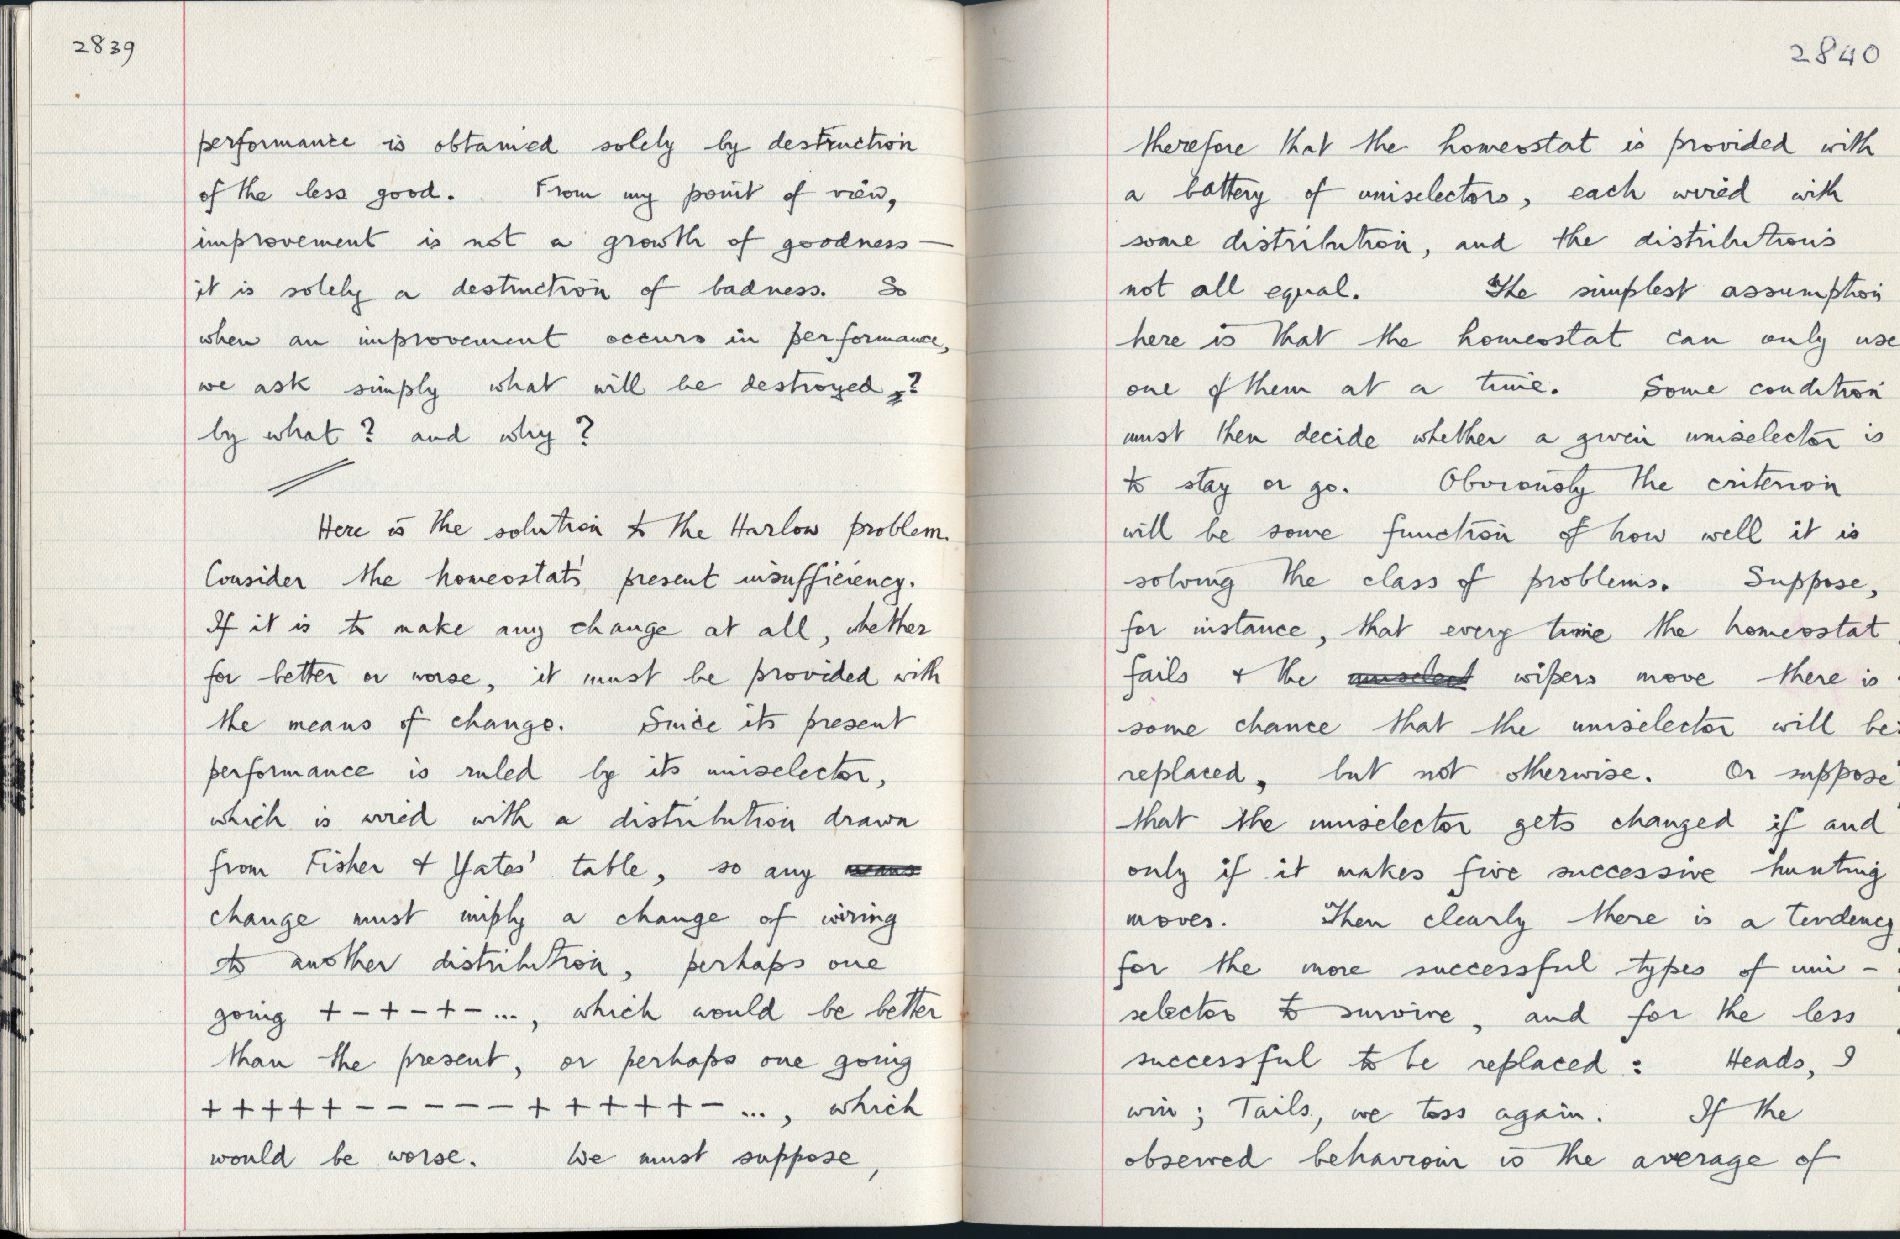 2839
performance is obtained solely by destruction
of the less good. From my point of view,
improvement is not a growth of goodness —
it is solely a destruction of badness. So
when an improvement occurs in performance,
we ask simply what will be destroyed?
by what? and why?
Here is the solution to the Harlow problem.
Consider the homeostat's present insufficiency.
If it is to make any change at all, whether
for better or worse, it must be provided with
the means of change. Since its present
performance is ruled by its uniselector,
which is wired with a distribution drawn
from Fisher & Yates' table, so any
change must imply a change of wiring
to another distribution, perhaps one
going + - + - + - ..., which would be better
than the present, or perhaps one going
+ + + + + - - - - - - + + + + + - ..., which
would be worse. We must suppose,
2840
therefore that the homeostat is provided with
a battery of uniselectors, each wired with
some distribution, and the distributions
not all equal. The simplest assumption
here is that the homeostat can only use
one of them at a time. Some condition
must then decide whether a given uniselector is
to stay or go. Obviously the criterion
will be some function of how well it is
solving the class of problems. Suppose,
for instance, that every time the homeostat
fails & the wipers move there is
some chance that the uniselector will be
replaced, but not otherwise. Or suppose
that the uniselector gets changed if and
only if it makes five successive hunting
moves. Then clearly there is a tendency
for the more successful types of uni-
selector to survive, and for the less
successful to be replaced: Heads, I
win; Tails, we toss again. If the
observed behaviour is the average of